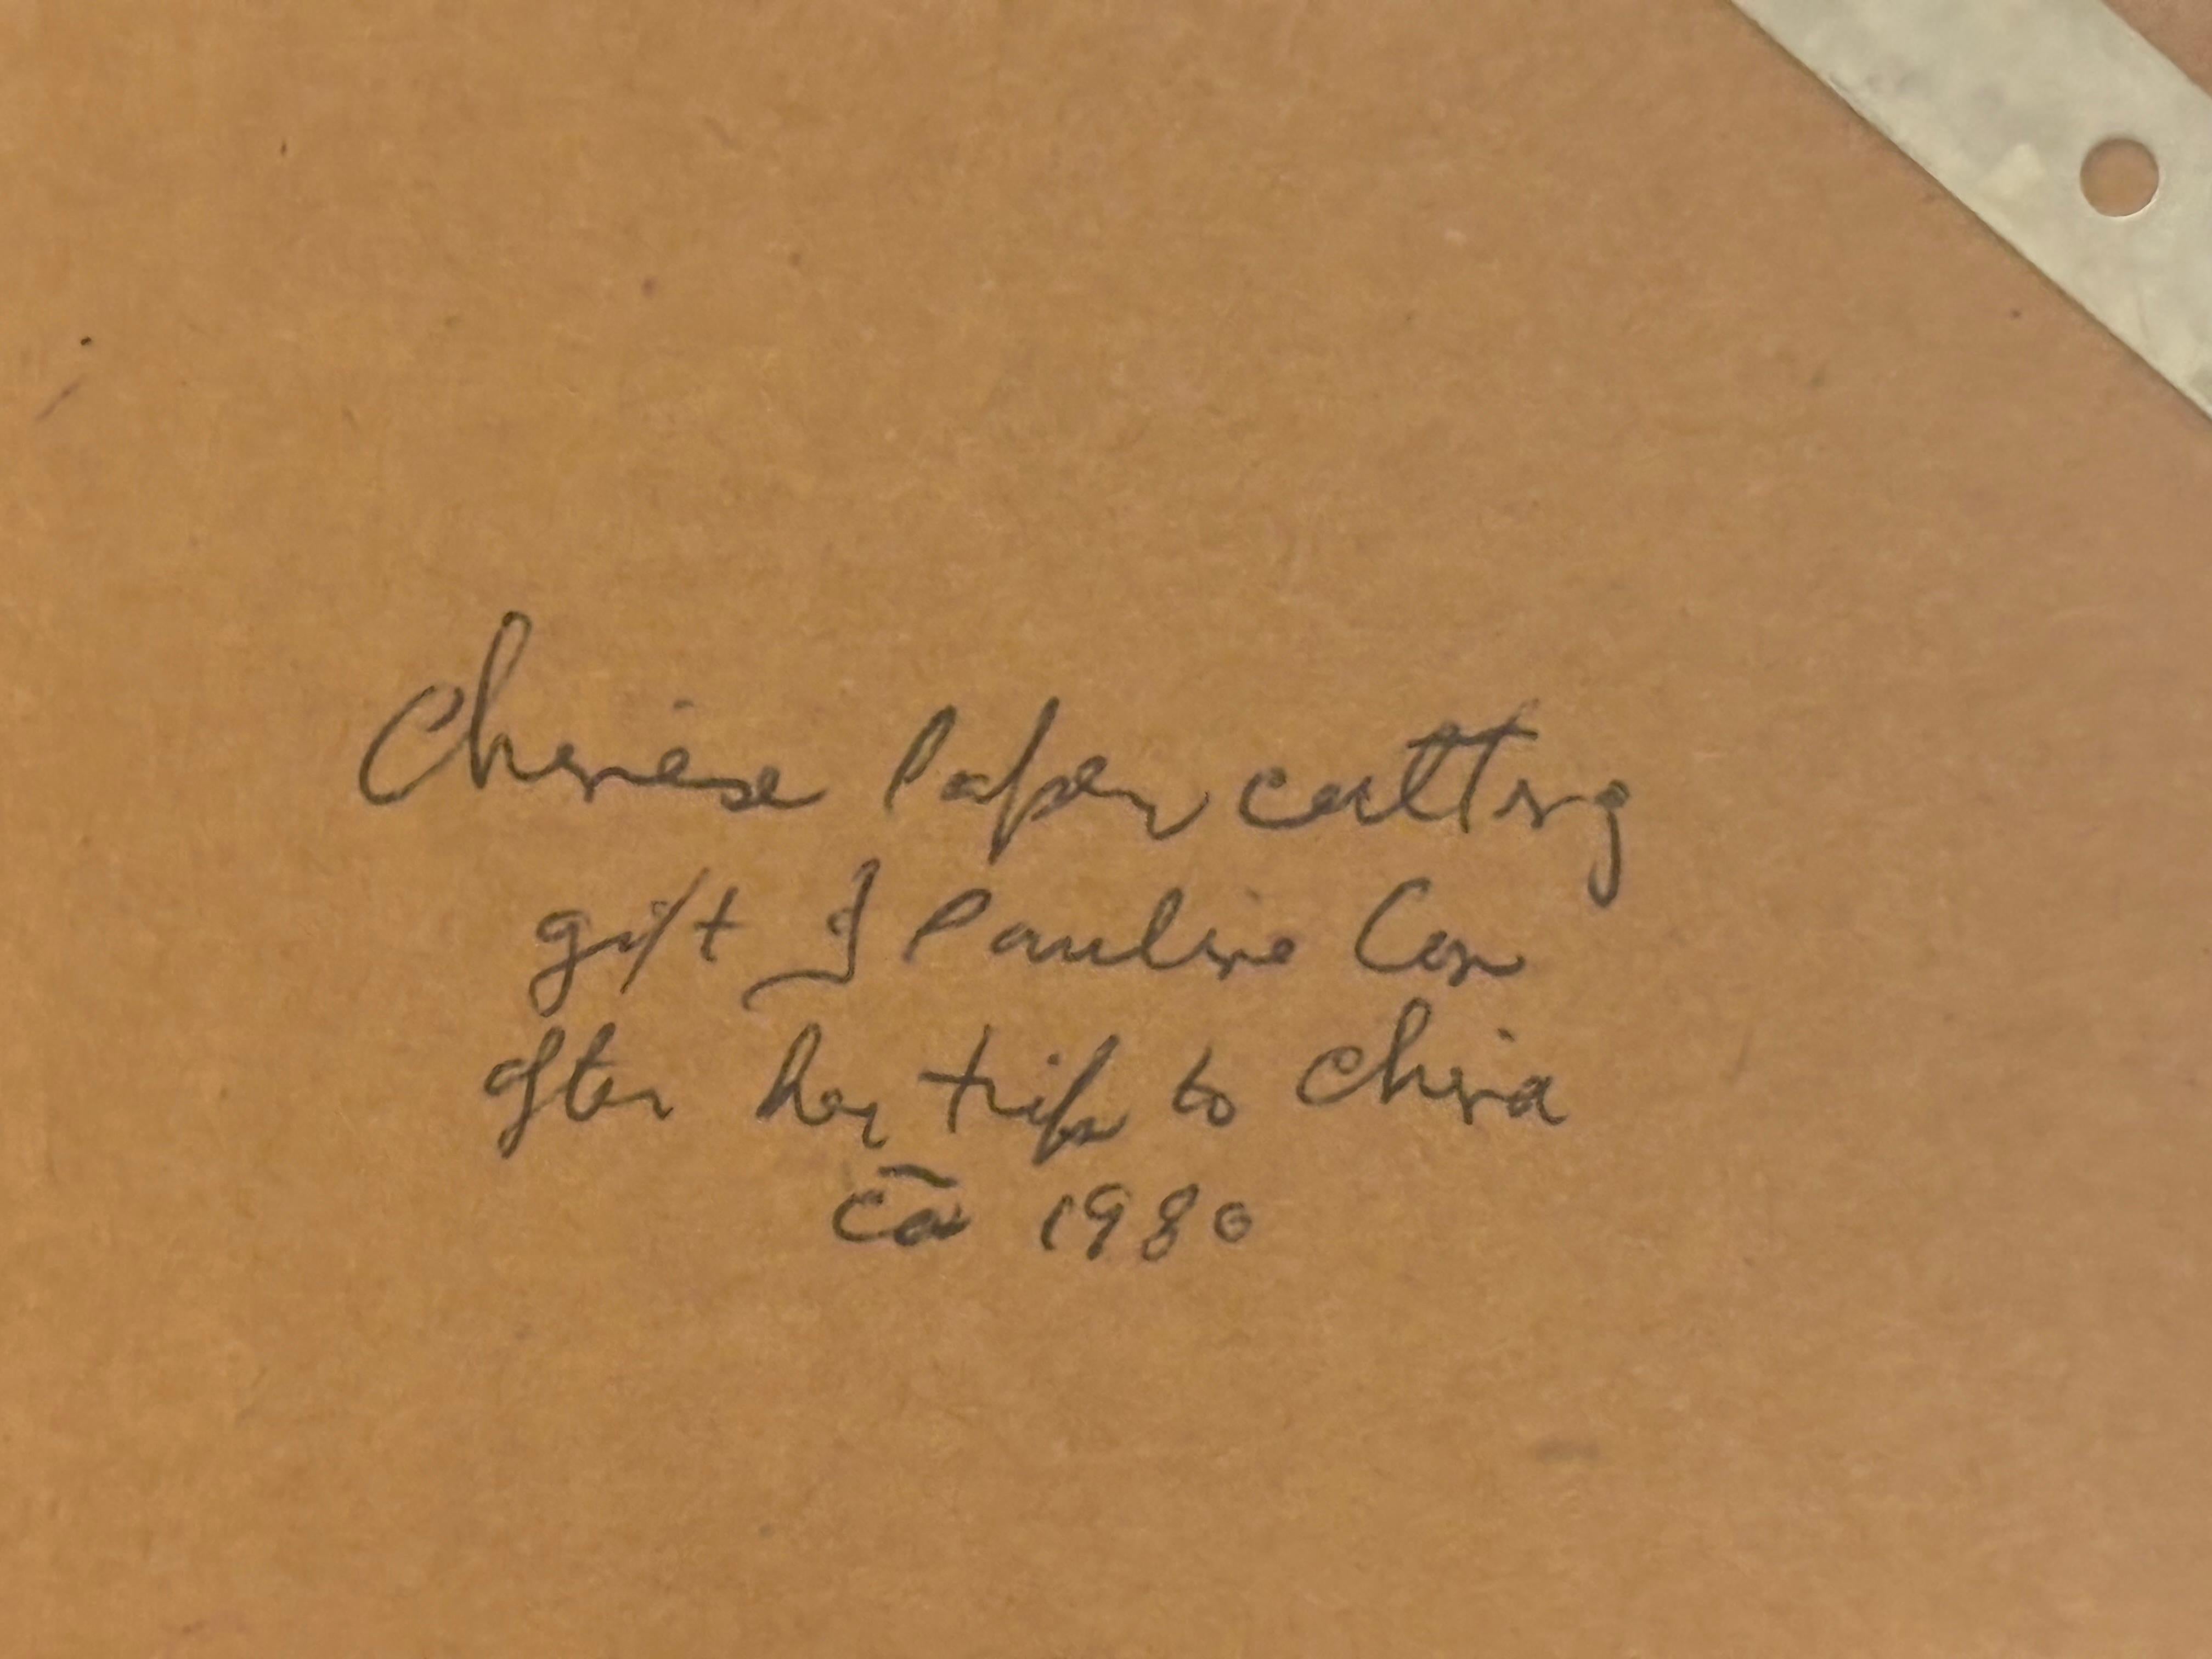 Chinese Paper cutting
gift of Pauline
after her trip to China
ca 1980